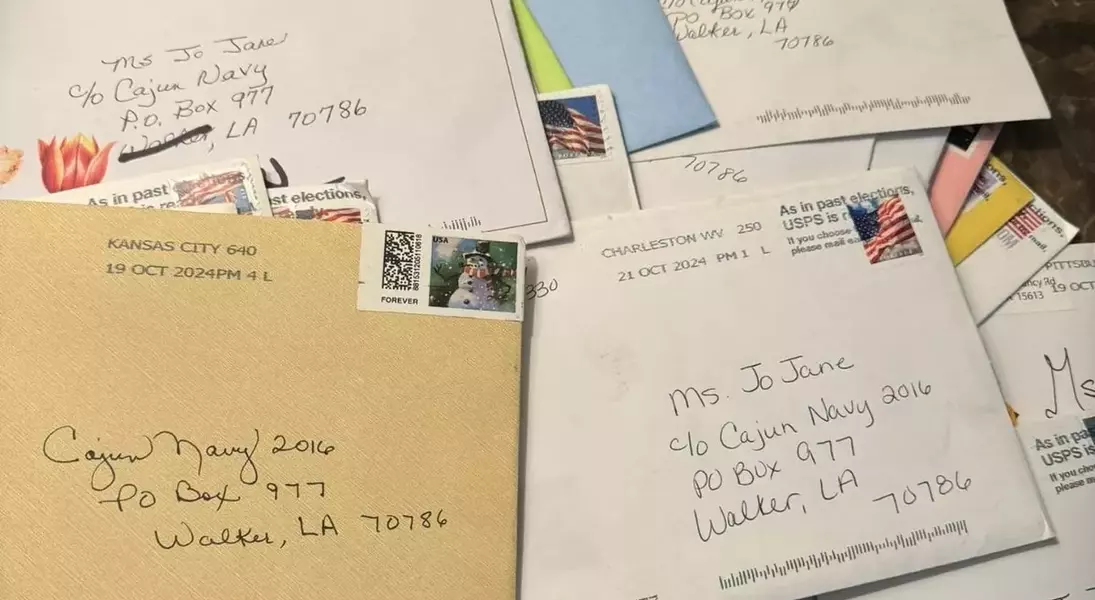 Ms Jo Jane
c/o Cajun Navy
P.O. Box 977
Walker, LA 70786
c/o Cajun
PO Box 977
Walker, LA
70786
70786
As in past
st elections,
As in past elections,
USPS is r
If you choose
please mail
KANSAS CITY 640
19 OCT 2024PM 4 L
USA
FOREVER
Cajun Navy 2016
PO Box 977
Walker, LA 70786
330
CHARLESTON WV 250
21 OCT 2024 PM 1 L
Ms. Jo Jane
c/o Cajun Navy 2016
PO BOX 977
Walker, LA
70786
ctions,
mail,
PITTSBU
ncy Rd
15613
19 OCT
Ms
As in pa
USPS is
If you cho
please